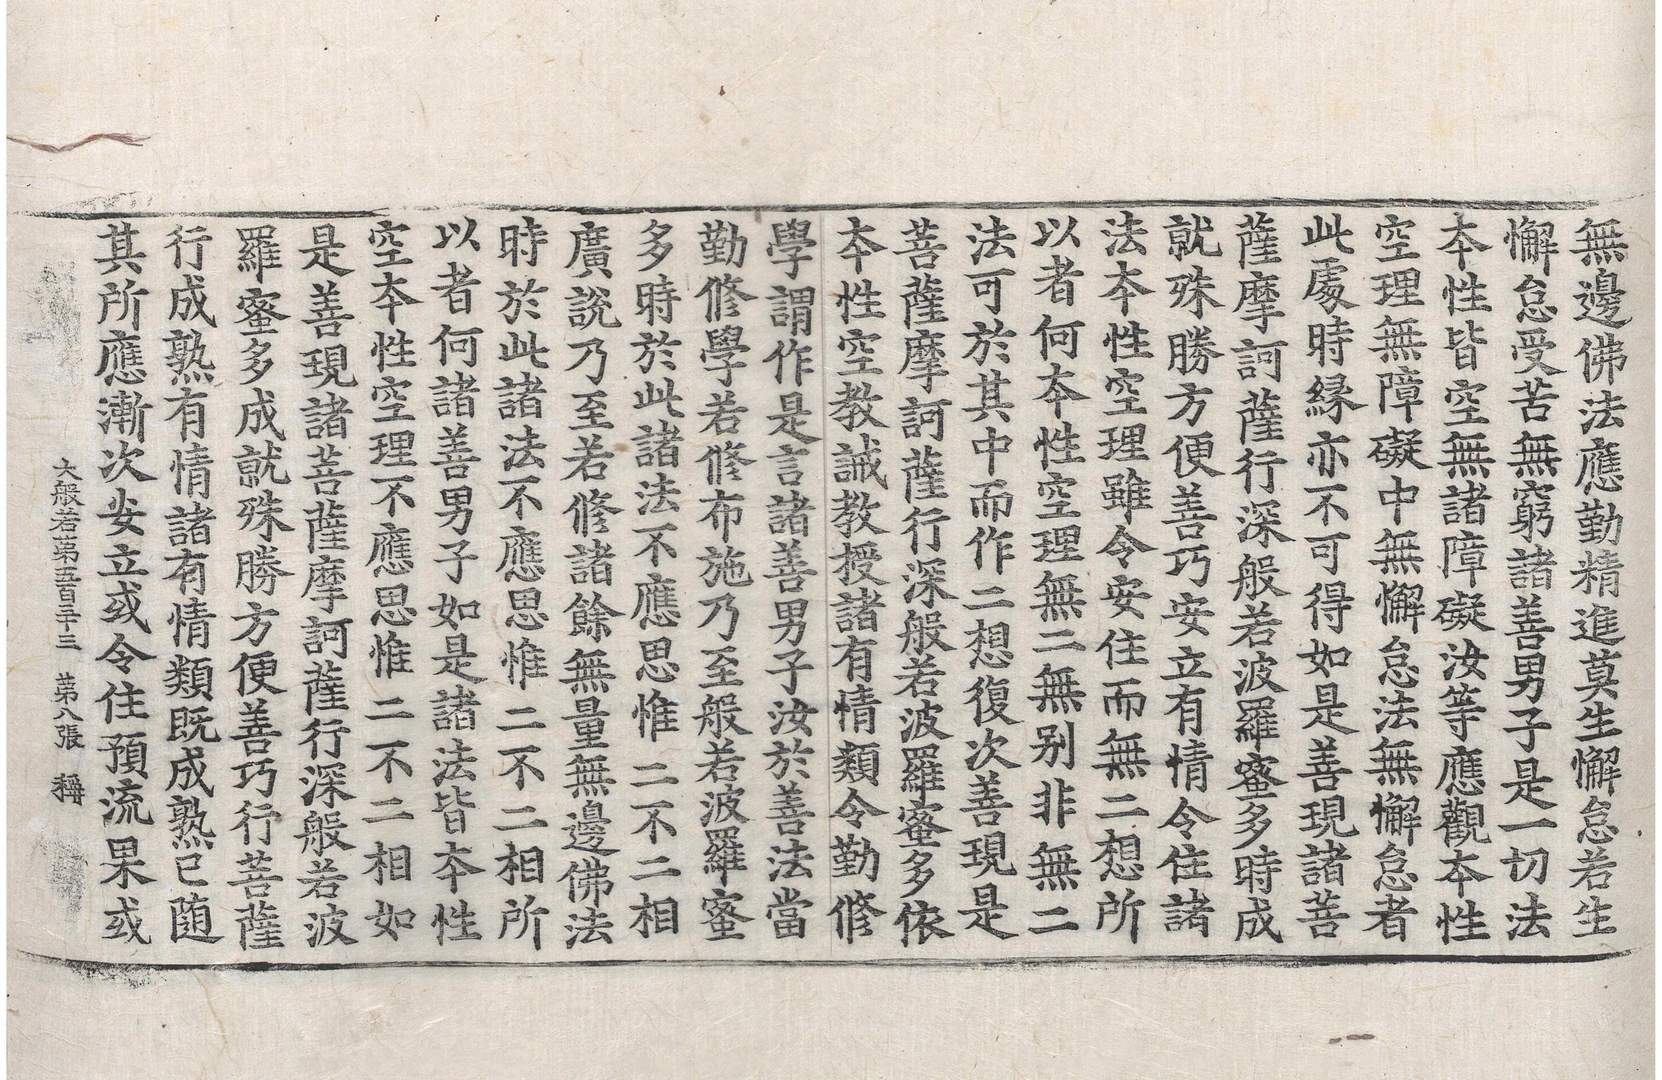 無邊佛法應勤精進莫生懈怠若生
懈怠受苦無窮諸善男子是一切法
本性皆空無諸障礙汝等應觀本性
空理無障礙中無懈怠法無懈怠者
此處時緣亦不可得如是善現諸菩
薩摩訶薩行深般若波羅蜜多時成
就殊勝方便善巧安立有情令住諸
法本性空理雖令安住而無二想所
以者何本性空理無二無別非無二
法可於其中而作二想復次善現是
菩薩摩訶薩行深般若波羅蜜多依
本性空教誡教授諸有情類令勤修
學謂作是言諸善男子汝於善法當
勤修學若修布施乃至般若波羅蜜
多時於此諸法不應思惟二不二相
廣說乃至若修諸餘無量無邊佛法
時於此諸法不應思惟二不二相所
以者何諸善男子如是諸法皆本性
空本性空理不應思惟二不二相如
是善現諸菩薩摩訶薩行深般若波
羅蜜多成就殊勝方便善巧行菩薩
行成熟有情諸有情類既成熟已隨
其所應漸次安立或令住預流果或
大般若第五百三十三　第八張　稱